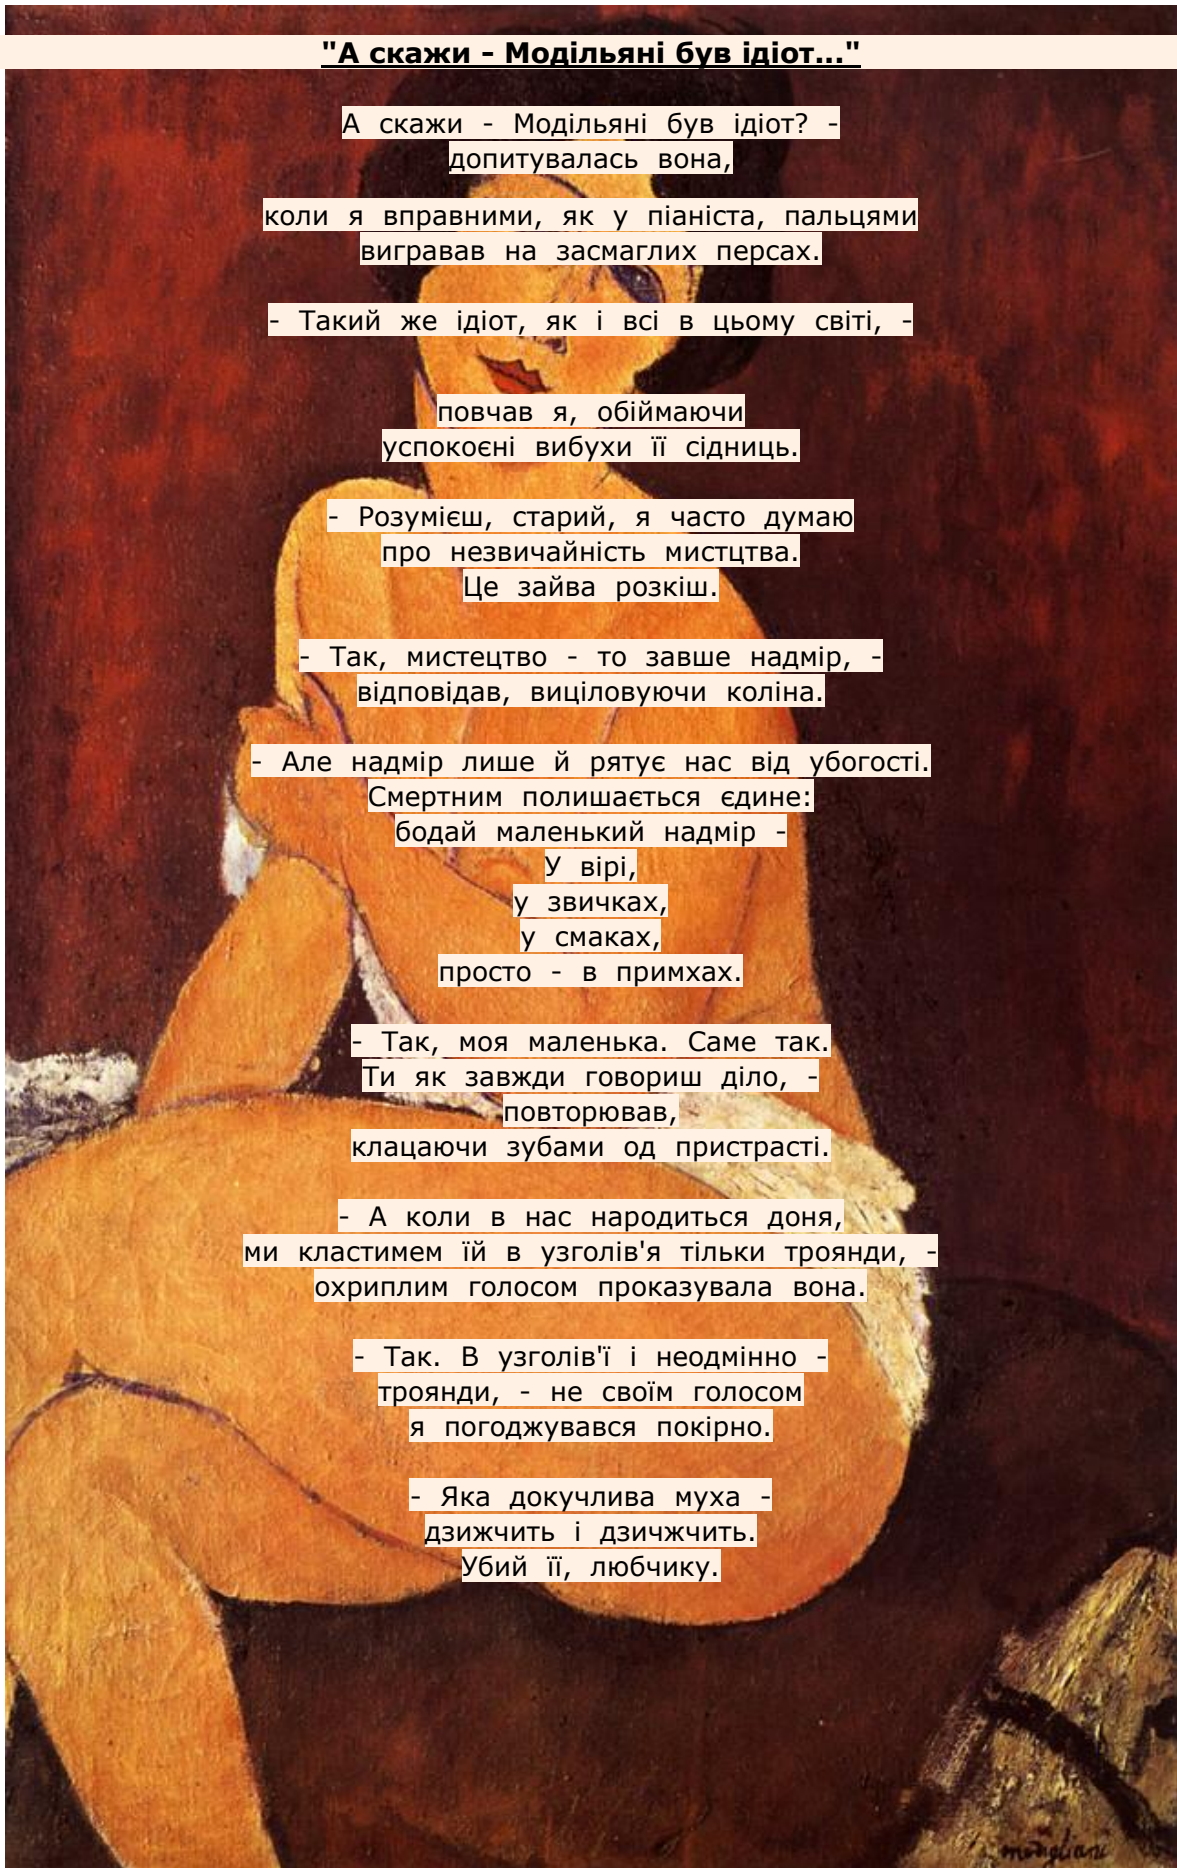 "А скажи – Модільяні був ідіот..."
А скажи - Модільяні був ідіот? -
допитувалась вона,
коли я вправними, як у піаніста, пальцями
вигравав на засмаглих персах.
- Такий же ідіот, як і всі в цьому світі, -
повчав я, обіймаючи
успокоєні вибухи її сідниць.
- Розумієш, старий, я часто думаю
про незвичайність мистцтва.
Це зайва розкіш.
- Так, мистецтво - то завше надмір, -
відповідав, виціловуючи коліна.
- Але надмір лише й рятує нас від убогості.
Смертним полишається єдине:
бодай маленький надмір -
У вірі,
у звичках,
у смаках,
просто - в примхах.
- Так, моя маленька. Саме так.
Ти як завжди говориш діло, -
повторював,
клацаючи зубами од пристрасті.
- А коли в нас народиться доня,
ми кластимем їй в узголів'я тільки троянди, -
охриплим голосом проказувала вона.
- Так. В узголів'ї і неодмінно -
троянди, - не своїм голосом
я погоджувався покірно.
- Яка докучлива муха -
дзижчить і дзичжчить.
Убий її, любчику.
modigliani